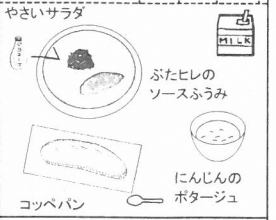 やさいサラダ
MILK
ぶたヒレの
ソースふうみ
にんじんの
ポタージュ
コッペパン